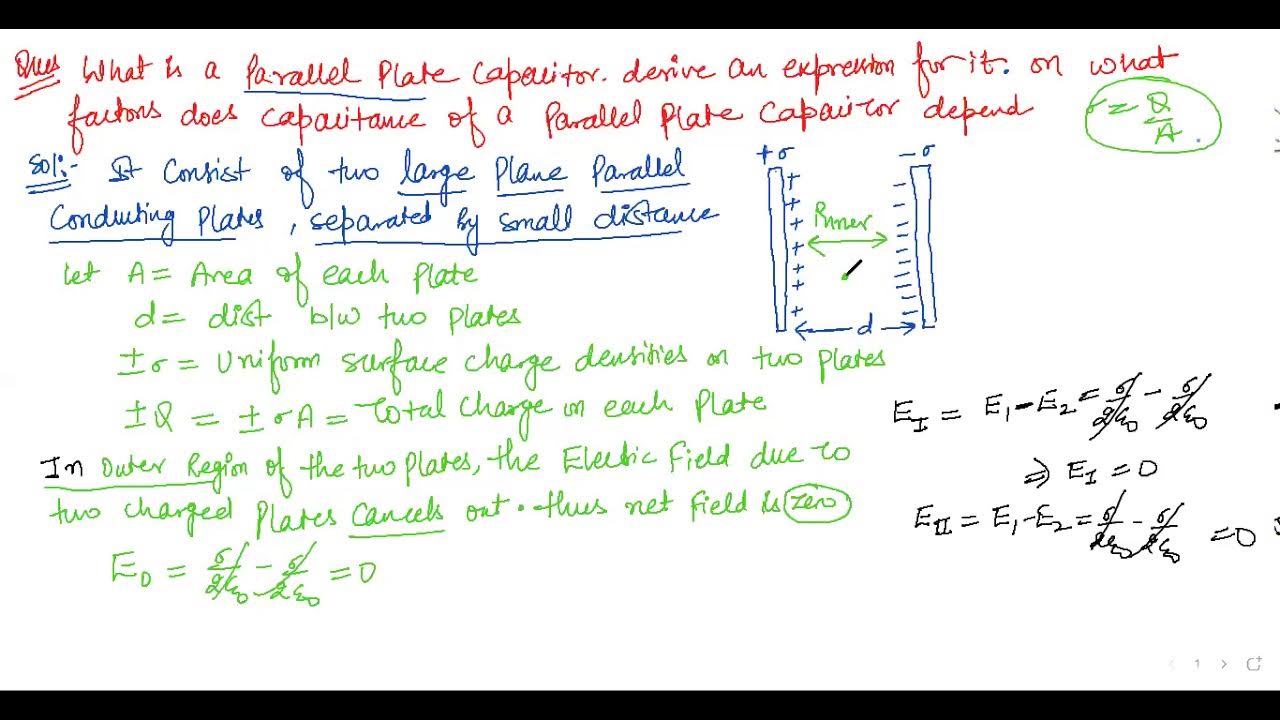 Ques What is a Parallel Plate Capacitor. derive an expression for it. on what
factors does capacitance of a Parallel Plate Capacitor depend
σ = Q/A
Sol:- It Consist of two large Plane Parallel
Conducting Plates, separated by small distance
+σ -σ
Let A = Area of each Plate
d = dist b/w two plates
± σ = Uniform surface charge densities on two plates
± Q = ± σA = Total Charge on each Plate
d
In Outer Region of the two plates, the Electric Field due to
two charged Plates Cancels out. thus net field is zero
E0 = σ/2ε0 - σ/2ε0 = 0
EI = E1 - E2 = σ/2ε0 - σ/2ε0
⇒ EI = 0
EII = E1 - E2 = σ/2ε0 - σ/2ε0 = 0
1